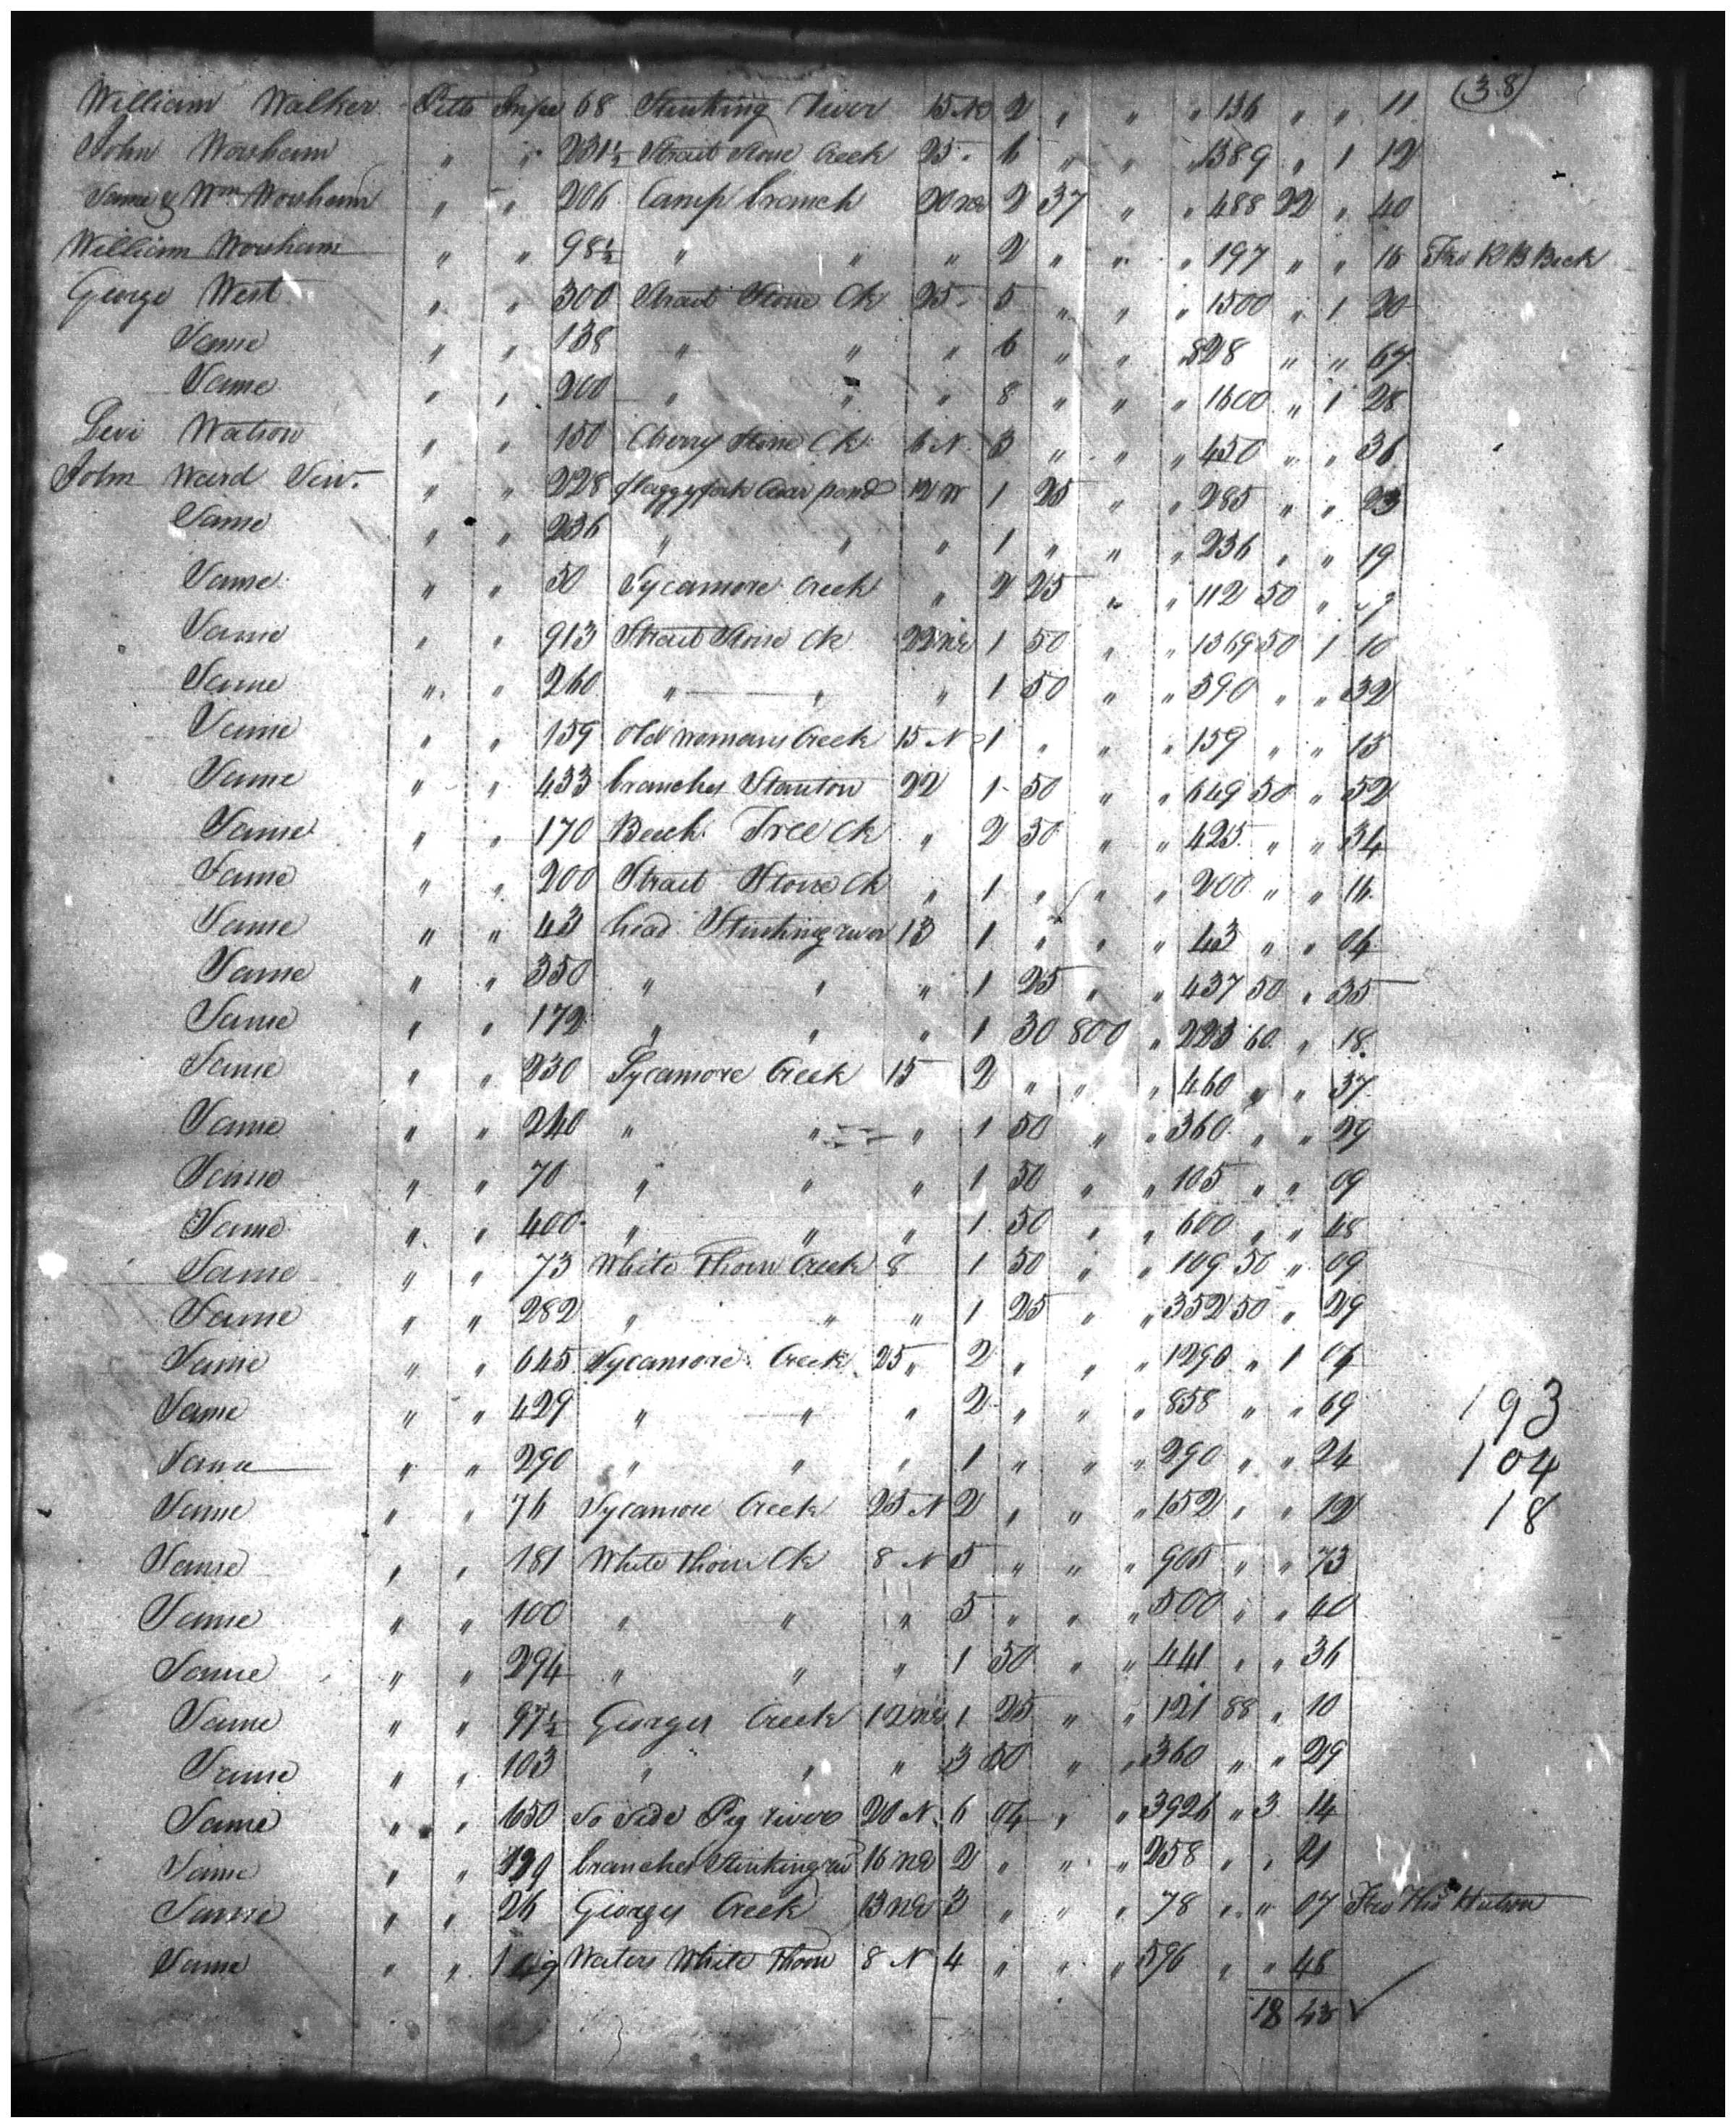 (38)
William Walker Pitts Inspee 68 Stinking River 15 NE 2 " " " 136 " " 11
John Worsham " " 231½ Strait Stone Creek 25 " 6 " " " 1389 " 1 12
Same & Wm Worsham " " 206 Camp branch 20 NE 2 37 " " 488 22 " 40
William Worsham " " 98½ " " " 2 " " " 197 " " 16 Fro R B Beck
George West " " 300 Strait Stone Ck 25 " 5 " " " 1500 " 1 20
Same " " 138 " " " 6 " " " 828 " " 67
Same " " 200 " " " 8 " " " 1600 " 1 28
Levi Watson " " 150 Cherry Stone Ck 6 N 3 " " " 450 " " 36
John Ward Sen. " " 228 flaggyfork bear pond 12 N 1 25 " " 285 " " 23
Same " " 236 " " " 1 " " " 236 " " 19
Same " " 50 Sycamore Creek " 2 25 " " 112 50 " 9
Same " " 913 Strait Stone Ck 22 NE 1 50 " " 1369 50 1 10
Same " " 260 " " " 1 50 " " 390 " " 32
Same " " 159 Old womans Creek 15 N 1 " " " 159 " " 13
Same " " 433 branches Stanton 22 1 50 " " 649 50 " 52
Same " " 170 Beech Tree Ck " 2 50 " " 425 " " 34
Same " " 200 Strait Stone Ck " 1 " " " 200 " " 16
Same " " 43 head Stinking river 13 1 " " " 43 " " 04
Same " " 350 " " " 1 25 " " 437 50 " 35
Same " " 172 " " " 1 30 800 " 223 60 " 18
Same " " 230 Sycamore Creek 15 2 " " " 460 " " 37
Same " " 240 " " " 1 50 " " 360 " " 29
Same " " 70 " " " 1 50 " " 105 " " 09
Same " " 400 " " " 1 50 " " 600 " " 48
Same " " 73 White Thorn Creek 8 1 50 " " 109 50 " 09
Same " " 282 " " " 1 25 " " 352 50 " 29
Same " " 645 Sycamore Creek 25 " 2 " " " 1290 " 1 04
Same " " 429 " " " 2 " " " 858 " " 69
193
Same " " 290 " " " 1 " " " 290 " " 24
104
Same " " 76 Sycamore Creek 25 N 2 " " " 152 " " 12
18
Same " " 181 White Thorn Ck 8 N 5 " " " 905 " " 73
Same " " 100 " " " 5 " " " 500 " " 40
Same " " 294 " " " 1 50 " " 441 " " 36
Same " " 97½ Georges Creek 12 NE 1 25 " " 121 88 " 10
Same " " 103 " " " 3 50 " " 360 " " 29
Same " " 650 So side Pig river 20 N 6 04 " " 3926 " 3 14
Same " " 129 branches Stinking riv 16 NE 2 " " " 258 " " 21
Same " " 26 Georges Creek 13 NE 3 " " " 78 " " 07 Fro Thos Hutson
Same " " 149 Waters White Thorn 8 N 4 " " " 596 " " 48
18 43 ✓